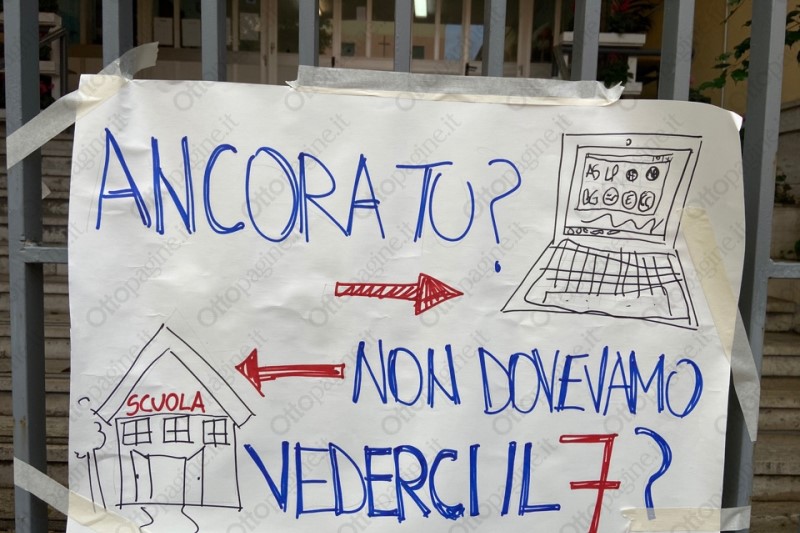 ANCORA TU?
NON DOVEVAMO
SCUOLA
VEDERCI IL 7?
Ottopagine.it